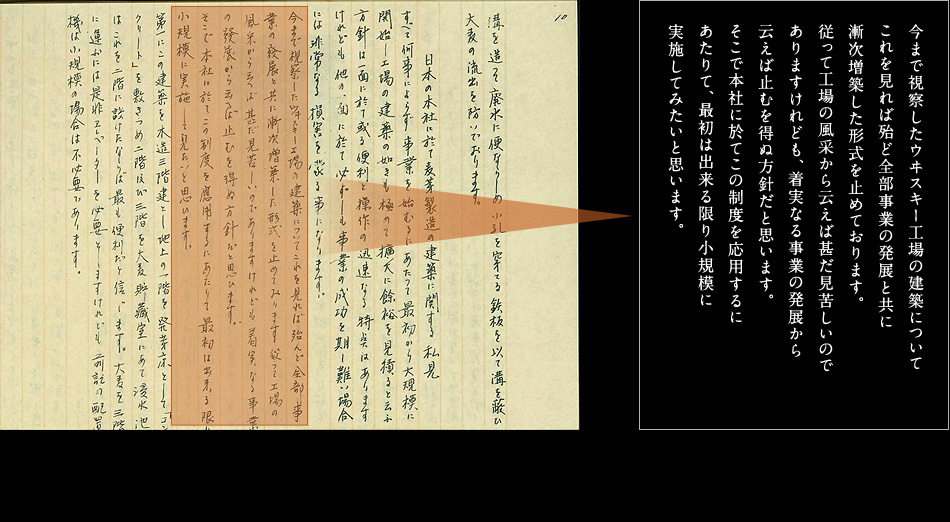 10
溝を造て廃水に便ならしめ小孔を穿てる鉄板を以て溝を蔽ひ
大麦の流出を防いでおります。
日本の本社に於て麦芽製造の建築に関する私見
すべて何事によらず事業を始むるにあたって最初から大規模に
開始し工場の建築の如きも極めて擴大に餘裕を見積ると云ふ
方針は一面に於て或る便利と操作の迅速なる特点はあります
けれども他の一面に於て必ずしも事業の成功を期し難い場合
には非常なる損害を蒙る事になります。
今まで視察したウヰスキー工場の建築についてこれを見れば殆んど全部事
業の発展と共に漸次増築した形式を止めております 従つて工場の
風采から云えば甚だ見苦しいのでありますけれども着実なる事業
の發展から云えば止むを得ぬ方針だと思ひます。
そこで本社に於てこの制度を應用するにあたりて最初は出来る限
小規模に実施して見たいと思います。
第一にこの建築を木造三階建とし地上の一階を発芽床として「コン
クリート」を敷きつめ二階及び三階を大麦貯藏室にあて浸水池
はこれを二階に設けたならば最も便利だと信じます。大麦を三階
に運ぶには是非エレベーターを必要としますけれども前記の配置
機は小規模の場合は不必要であります。
今まで視察したウヰスキー工場の建築について
これを見れば殆ど全部事業の発展と共に
漸次増築した形式を止めております。
従って工場の風采から云えば甚だ見苦しいので
ありますけれども、着実なる事業の発展から
云えば止むを得ぬ方針だと思います。
そこで本社に於てこの制度を応用するに
あたりて、最初は出来る限り小規模に
実施してみたいと思います。